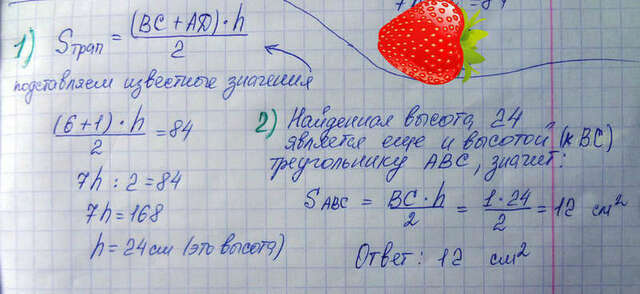 1) Sтрап = (BC + AD) · h / 2
подставляем известные значения
(6+1) · h / 2 = 84
7h : 2 = 84
7h = 168
h = 24 см (это высота)
2) Найденная высота, 24
является еще и высотой (к BC)
треугольнику ABC, значит:
S ABC = BC · h / 2 = 1 · 24 / 2 = 12 см²
Ответ: 12 см²